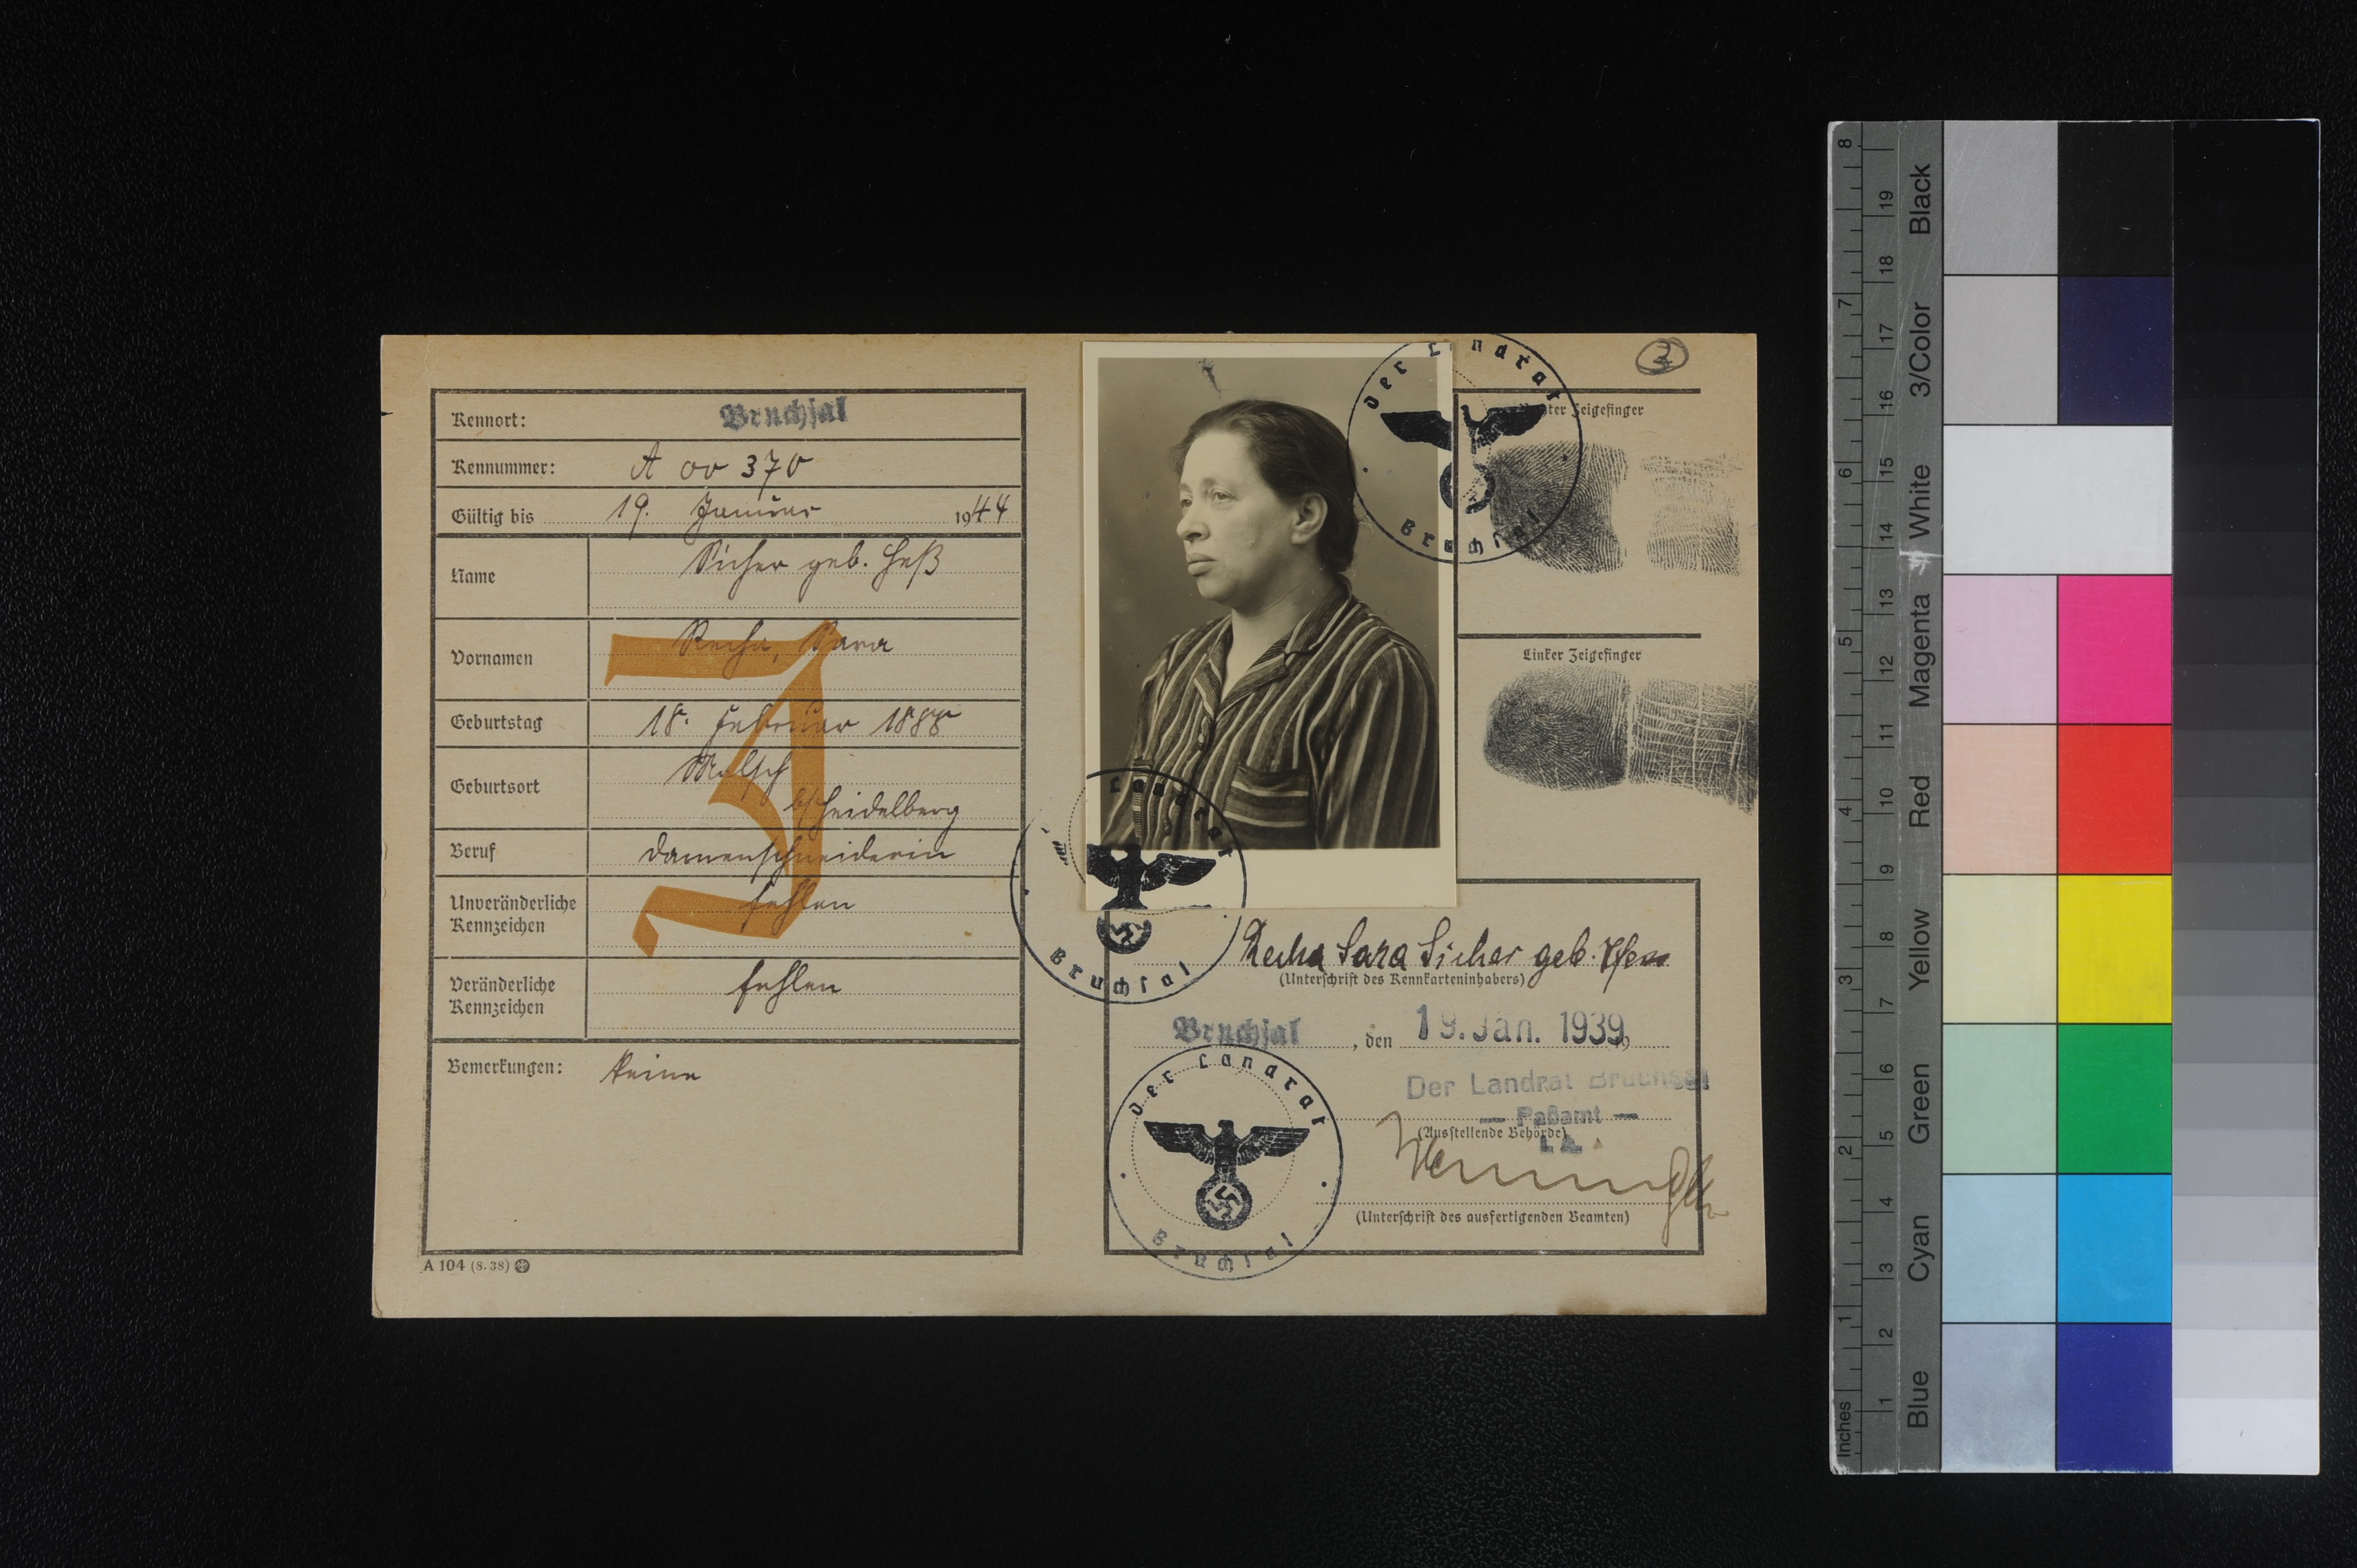 Kennort: Bruchsal
Kennummer: A 00 370
Gültig bis 19. Januar 1944
Name Sicher geb. Heß
Vornamen Recha, Sara
Geburtstag 18. Februar 1888
Geburtsort Malsch
b/Heidelberg
Beruf Damenschneiderin
Unveränderliche
Kennzeichen fehlen
Veränderliche
Kennzeichen fehlen
Bemerkungen: Keine
A 104 (8.38)
J
3
Der Landrat
Bruchsal
Zeigefinger
Linker Zeigefinger
Landrat
Bruchsal
Recha Sara Sicher geb. Hess
(Unterschrift des Kennkarteninhabers)
Bruchsal, den 19. Jan. 1939
Der Landrat Bruchsal
— Paßamt —
(Ausstellende Behörde)
I.A.
(Unterschrift des ausfertigenden Beamten)
Der Landrat
Bruchsal
Inches 1 2 3 4 5 6 7 8
1 2 3 4 5 6 7 8 9 10 11 12 13 14 15 16 17 18 19
Blue Cyan Green Yellow Red Magenta White 3/Color Black